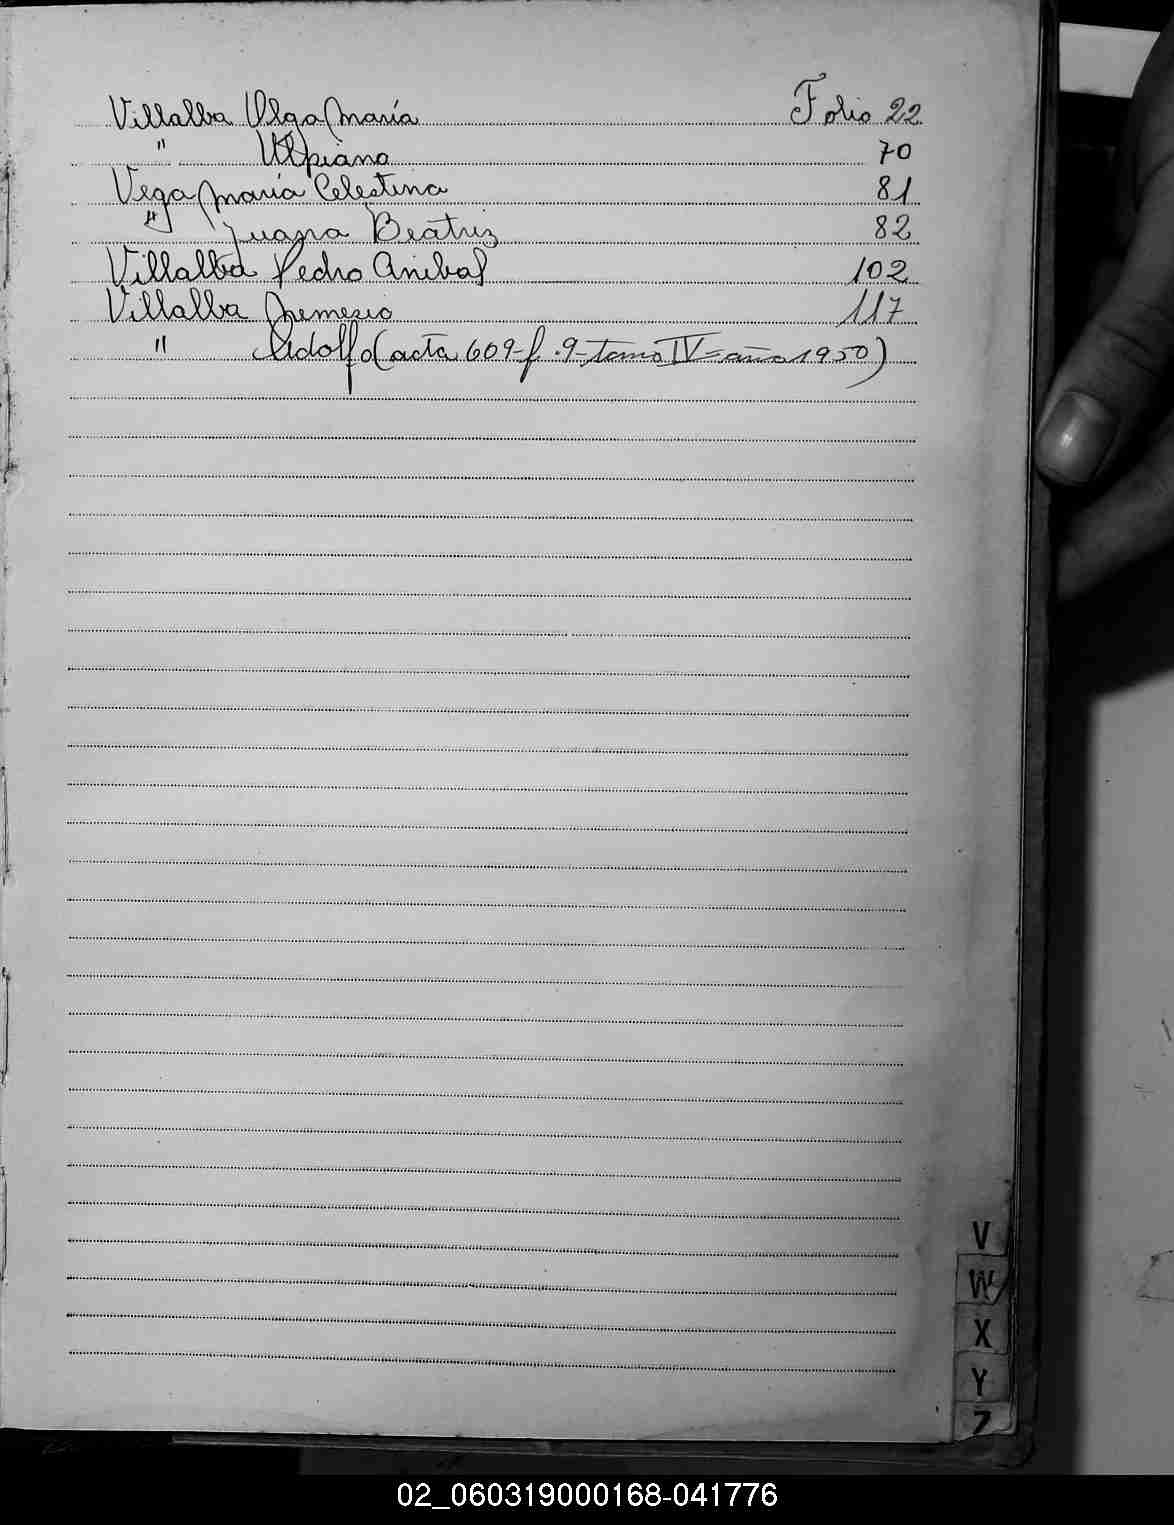 Villalba Olga María Folio 22
" Ulpiano 70
Vega María Celestina 81
" Juana Beatriz 82
Villalba Pedro Anibal 102
Villalba Nemesio 117
" Adolfo (acta 609-f. 9-tomo IV=año 1950)
V
W
X
Y
Z
02_060319000168-041776